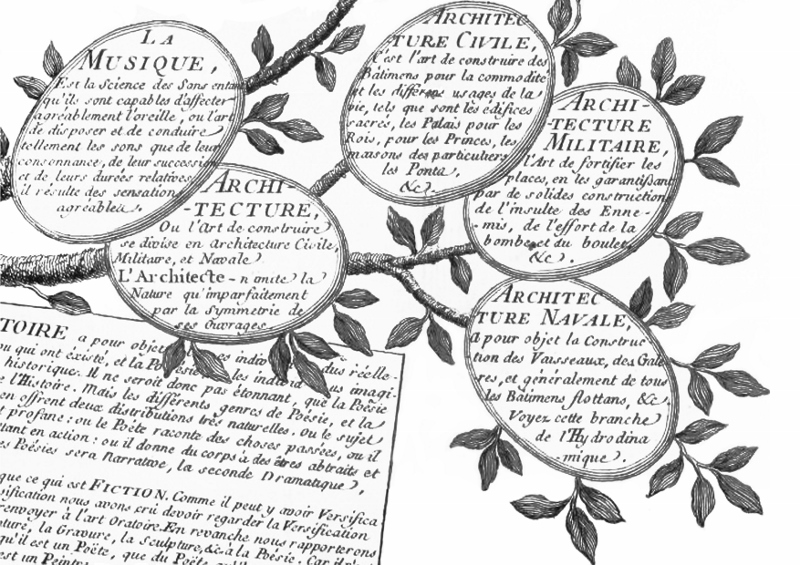 LA
MUSIQUE,
Est la Science des Sons entant
qu'ils sont capables d'affecter
agréablement l'oreille, ou l'art
de disposer et de conduire
tellement les sons que de leur
consonnance, de leur succession
et de leurs durées relatives
il résulte des sensations
agréables.
ARCHITEC
TURE CIVILE,
C'est l'art de construire des
Bâtimens pour la commodité
et les différens usages de la
vie, tels que sont les édifices
sacrés, les Palais pour les
Rois, pour les Princes, les
maisons des particuliers
les Ponts,
&c.
ARCHI-
-TECTURE
MILITAIRE,
l'Art de fortifier les
places, en les garantissant
par de solides construction
de l'insulte des Enne-
mis, de l'effort de la
bombe et du boulet,
&c.
ARCHI-
-TECTURE,
Ou l'Art de construire
se divise en architecture Civile,
Militaire, et Navale
L'Architecte - n'imite la
Nature qu'imparfaitement
par la Symmetrie de
ses Ouvrages
ARCHITEC
TURE NAVALE,
a pour objet la Construc
tion des Vaisseaux, des Gale
res, et généralement de tous
les Bâtimens flottans, &c.
Voyez cette branche
de l'Hydrodina
mique.
TOIRE a pour objet
ou qui ont éxisté, et la Po les individus réelle-
historique. Il ne seroit donc pas étonnant, que la Poësie
e l'Histoire. Mais les différents genres de Poësie, et la
en offrent deux distributions très naturelles. Ou le sujet
t profane: ou le Poëte raconte des choses passées, ou il
ttant en action: ou il donne du corps à des êtres abstraits et
es Poésies sera Narrative, la seconde Dramatique),
que ce qui est FICTION. Comme il peut y avoir Versifica
sification nous avons crû devoir regarder la Versification
renvoyer à l'art Oratoire. En revanche nous rapporterons
ture, la Gravure, la Sculpture, &c. à la Poésie. Car il n'est
qu'il est un Poëte, que du Poëte qu'il
est un Peintre